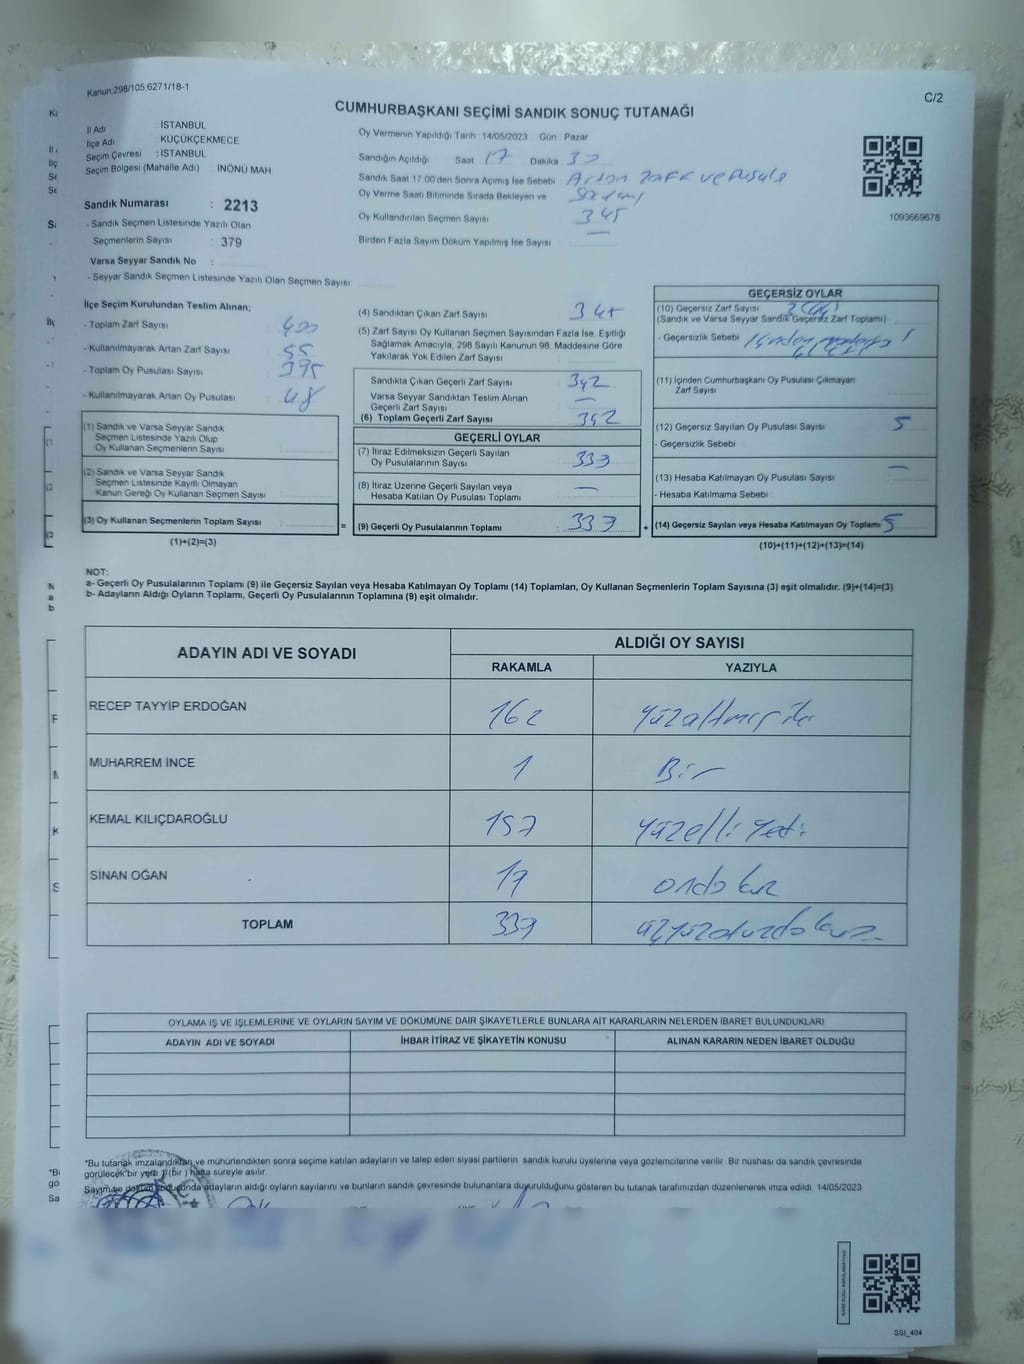 Kanun:298/105,6271/18-1
C/2
CUMHURBAŞKANI SEÇİMİ SANDIK SONUÇ TUTANAĞI
İl Adı : İSTANBUL
İlçe Adı : KÜÇÜKÇEKMECE
Seçim Çevresi : İSTANBUL
Seçim Bölgesi (Mahalle Adı) : İNÖNÜ MAH
Sandık Numarası : 2213
- Sandık Seçmen Listesinde Yazılı Olan
Seçmenlerin Sayısı : 379
Varsa Seyyar Sandık No :
- Seyyar Sandık Seçmen Listesinde Yazılı Olan Seçmen Sayısı
Oy Vermenin Yapıldığı Tarih :14/05/2023 Gün : Pazar
Sandığın Açıldığı Saat 17 Dakika
Sandık Saat 17.00'den Sonra Açımış İse Sebebi : Artan zarf ve Pusula
Oy Verme Saati Bitiminde Sırada Bekleyen ve
Oy Kullandırılan Seçmen Sayısı : 345
Birden Fazla Sayım Döküm Yapılmış İse Sayısı : —
1093669678
İlçe Seçim Kurulundan Teslim Alınan;
- Toplam Zarf Sayısı : 400
- Kullanılmayarak Artan Zarf Sayısı : 55
- Toplam Oy Pusulası Sayısı : 395
- Kullanılmayarak Artan Oy Pusulası : 48
(1) Sandık ve Varsa Seyyar Sandık
Seçmen Listesinde Yazılı Olup
Oy Kullanan Seçmenlerin Sayısı :
(2) Sandık ve Varsa Seyyar Sandık
Seçmen Listesinde Kayıtlı Olmayan
Kanun Gereği Oy Kullanan Seçmen Sayısı :
(3) Oy Kullanan Seçmenlerin Toplam Sayısı : =
(1)+(2)=(3)
(4) Sandıktan Çıkan Zarf Sayısı : 345
(5) Zarf Sayısı Oy Kullanan Seçmen Sayısından Fazla İse, Eşitliği
Sağlamak Amacıyla, 298 Sayılı Kanunun 98. Maddesine Göre
Yakılarak Yok Edilen Zarf Sayısı :
Sandıkta Çıkan Geçerli Zarf Sayısı : 342
Varsa Seyyar Sandıktan Teslim Alınan
Geçerli Zarf Sayısı : —
(6) Toplam Geçerli Zarf Sayısı : 342
GEÇERLİ OYLAR
(7) İtiraz Edilmeksizin Geçerli Sayılan
Oy Pusulalarının Sayısı : 339
(8) İtiraz Üzerine Geçerli Sayılan veya
Hesaba Katılan Oy Pusulası Toplamı : —
(9) Geçerli Oy Pusulalarının Toplamı : 339 +
GEÇERSİZ OYLAR
(10) Geçersiz Zarf Sayısı :
(Sandık ve Varsa Seyyar Sandık Geçersiz Zarf Toplamı)
- Geçersizlik Sebebi :
(11) İçinden Cumhurbaşkanı Oy Pusulası Çıkmayan
Zarf Sayısı :
(12) Geçersiz Sayılan Oy Pusulası Sayısı : 5
- Geçersizlik Sebebi :
(13) Hesaba Katılmayan Oy Pusulası Sayısı : —
- Hesaba Katılmama Sebebi :
(14) Geçersiz Sayılan veya Hesaba Katılmayan Oy Toplamı : 5
(10)+(11)+(12)+(13)=(14)
NOT:
a- Geçerli Oy Pusulalarının Toplamı (9) ile Geçersiz Sayılan veya Hesaba Katılmayan Oy Toplamı (14) Toplamları, Oy Kullanan Seçmenlerin Toplam Sayısına (3) eşit olmalıdır. (9)+(14)=(3)
b- Adayların Aldığı Oyların Toplamı, Geçerli Oy Pusulalarının Toplamına (9) eşit olmalıdır.
ADAYIN ADI VE SOYADI
ALDIĞI OY SAYISI
RAKAMLA YAZIYLA
RECEP TAYYİP ERDOĞAN 162 Yüzaltmış iki
MUHARREM İNCE 1 Bir
KEMAL KILIÇDAROĞLU 157 Yüzelli Yedi
SİNAN OĞAN 19 ondokuz
TOPLAM 339 üçyüzotuzdokuz
OYLAMA İŞ VE İŞLEMLERİNE VE OYLARIN SAYIM VE DÖKÜMÜNE DAİR ŞİKAYETLERLE BUNLARA AİT KARARLARIN NELERDEN İBARET BULUNDUKLARI
ADAYIN ADI VE SOYADI İHBAR İTİRAZ VE ŞİKAYETİN KONUSU ALINAN KARARIN NEDEN İBARET OLDUĞU
*Bu tutanak imzalandıktan ve mühürlendikten sonra seçime katılan adayların ve talep eden siyasi partilerin sandık kurulu üyelerine veya gözlemcilerine verilir. Bir nüshası da sandık çevresinde
görülecek bir yere 1 (bir) hafta süreyle asılır.
Sayım ve döküm sonucunda adayların aldığı oyların sayılarını ve bunların sandık çevresinde bulunanlara duyurulduğunu gösteren bu tutanak tarafımızdan düzenlenerek imza edildi. 14/05/2023
SSI_404